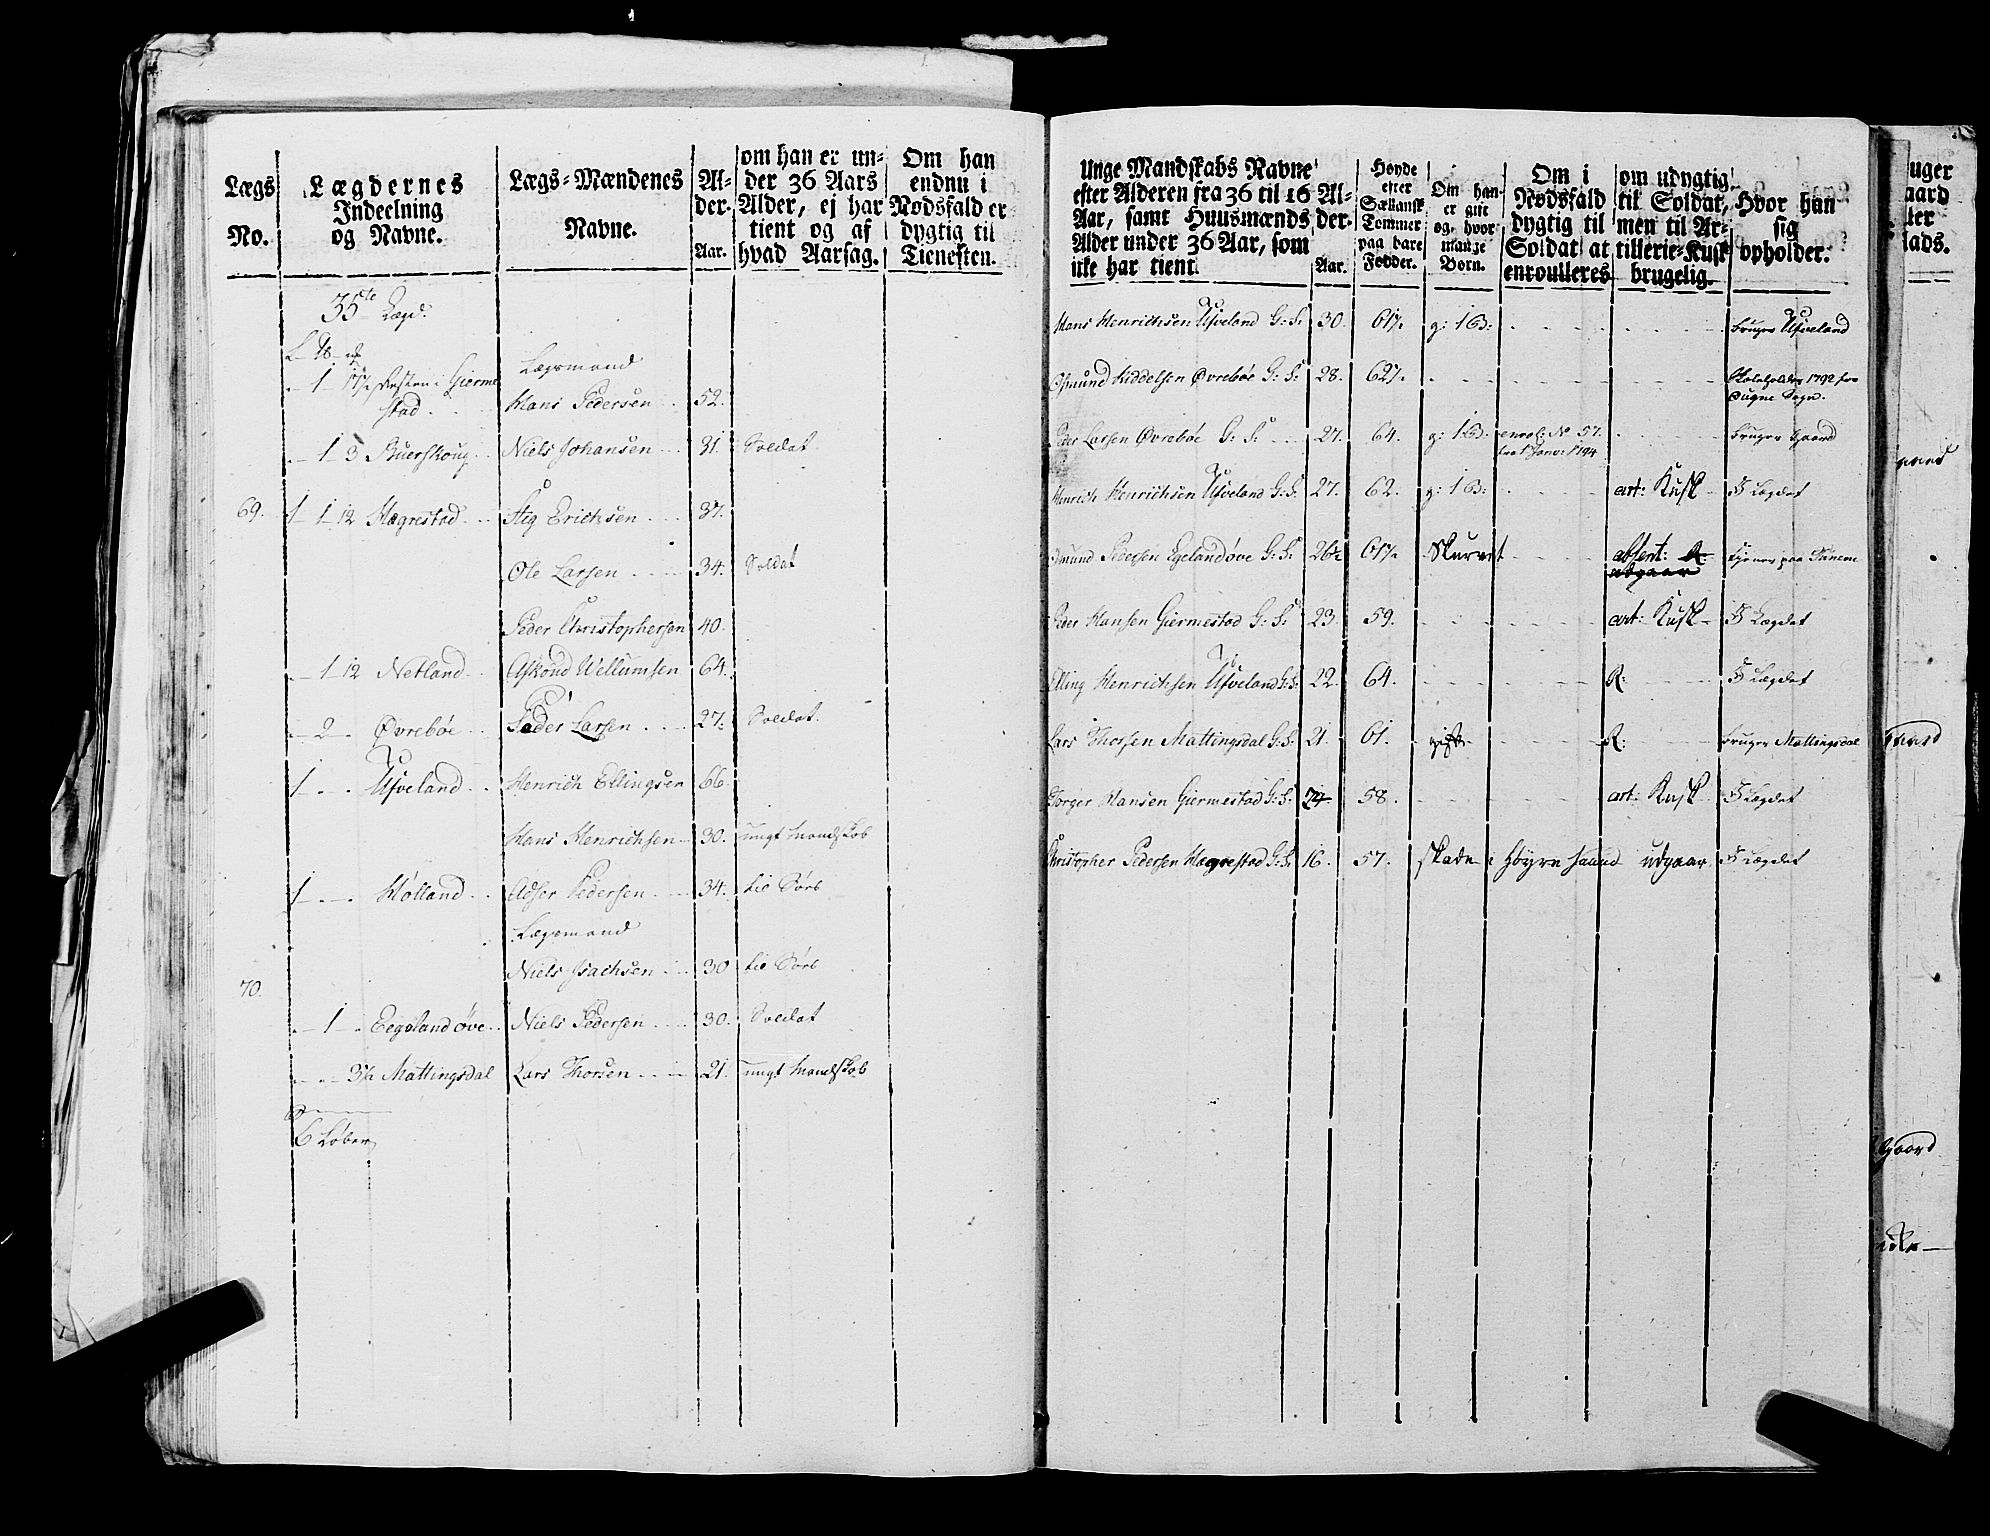 Lægs No.
Lægdernes Indeelning og Navne.
Lægs-Mændenes Navne.
Alder. Aar.
om han er under 36 Aars Alder, ej har tient og af hvad Aarsag.
Om han endnu i Nødsfald er dygtig til Tienesten.
35te Lægd.
Lægsmand
1 Giermestad Hans Pedersen 52.
1 3 Buerskoug Niels Johansen 31. Soldat
69. 1 1 12 Hægrestad Stig Erichsen 37.
Ole Larsen 34. Soldat
Peder Christophersen 40.
1 12 Netland Wellumsen 64.
2 Øvrebøe Peder Larsen 27. Soldat
1 Ufveland Henrich Ellingsen 66.
Hans Henrichsen 30. ungt Mandskab
1 Hølland Adser Pedersen 34. til Sørs
Lægsmand
70. Niels Isachsen 30 til Sørs
1 Eegeland øve Niels Pedersen 30. Soldat
3½ Mattingsdal Lars Thorsen 21. ungt Mandskab
6 Løber
Unge Mandskabs Navne efter Alderen fra 36 til 16 Aar, samt Huusmænds Alder under 36 Aar, som ikke har tient.
Alder. Aar.
Høyde efter Siællansk Tommer paa bare Fødder.
Om han er gift og hvor mange Børn.
Om i Nødsfald dygtig til Soldat at enroulleres
om udygtig til Soldat, men til Artillerie-Kusk brugelig.
Hvor han sig opholder.
Hans Henrichsen Ufveland G: S: 30. 61½ g: 1 B: bruger Ufveland
Osmund Kiddelsen Øvrebøe G: S: 28. 62½ Skoleholder 1792 for Øugne Sogn.
Peder Larsen Øvrebøe G: S: 27. 64. g: 1 B: enrol: No 57. fra 1 Janv: 1794 bruger Gaard
Henrich Henrichsen Ufveland G: S: 27. 62. g: 1 B: art: Kusk i Lægdet
Pedersen Egelandøve G: S: 26½ 61½ Skurvet absent: R: udgaar tjener paa
Peder Hansen Giermestad G: S: 23. 59. art: Kusk i Lægdet
Elling Henrichsen Ufveland G: S: 22. 64. R: i Lægdet
Lars Thorsen Mattingsdal G: S: 21. 61. gift R: bruger Mattingsdal
Torger Hansen Giermestad G: S: 58. art: Kusk i Lægdet
Christopher Pedersen Hægrestad G: S: 16. 57. skade i høyre haand udgaar i Lægdet
uger
aard
ter
lads.
Gaard